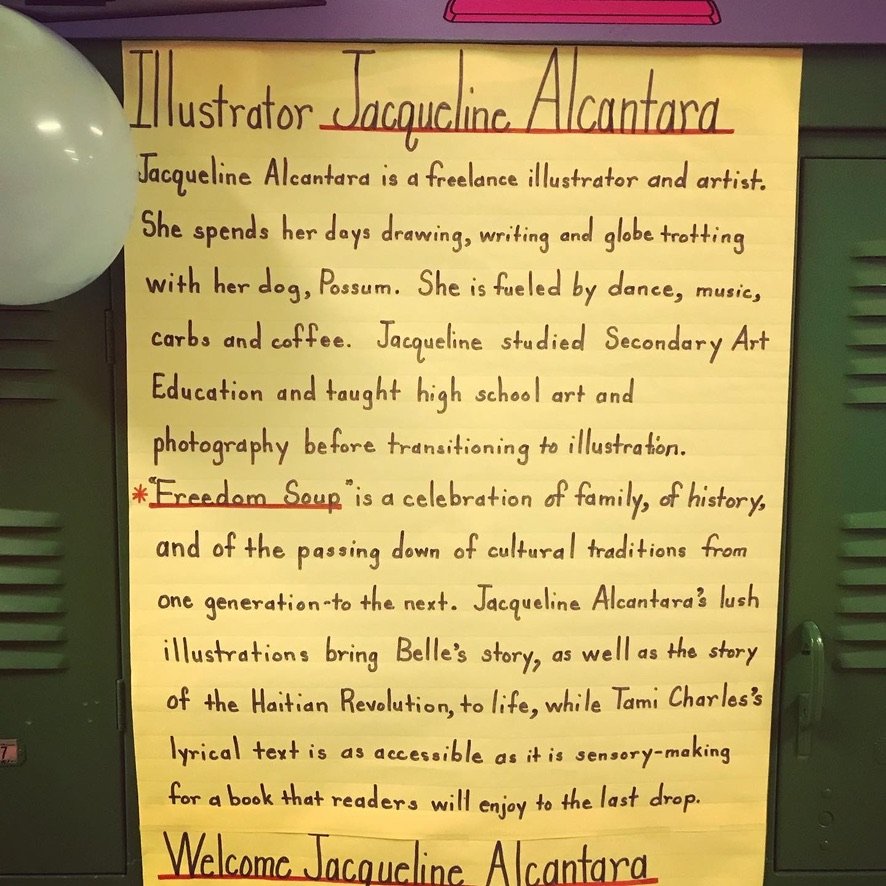 Illustrator Jacqueline Alcantara
Jacqueline Alcantara is a freelance illustrator and artist.
She spends her days drawing, writing and globe trotting
with her dog, Possum. She is fueled by dance, music,
carbs and coffee. Jacqueline studied Secondary Art
Education and taught high school art and
photography before transitioning to illustration.
*"Freedom Soup" is a celebration of family, of history,
and of the passing down of cultural traditions from
one generation-to the next. Jacqueline Alcantara's lush
illustrations bring Belle's story, as well as the story
of the Haitian Revolution, to life, while Tami Charles's
lyrical text is as accessible as it is sensory-making
for a book that readers will enjoy to the last drop.
Welcome Jacqueline Alcantara
7